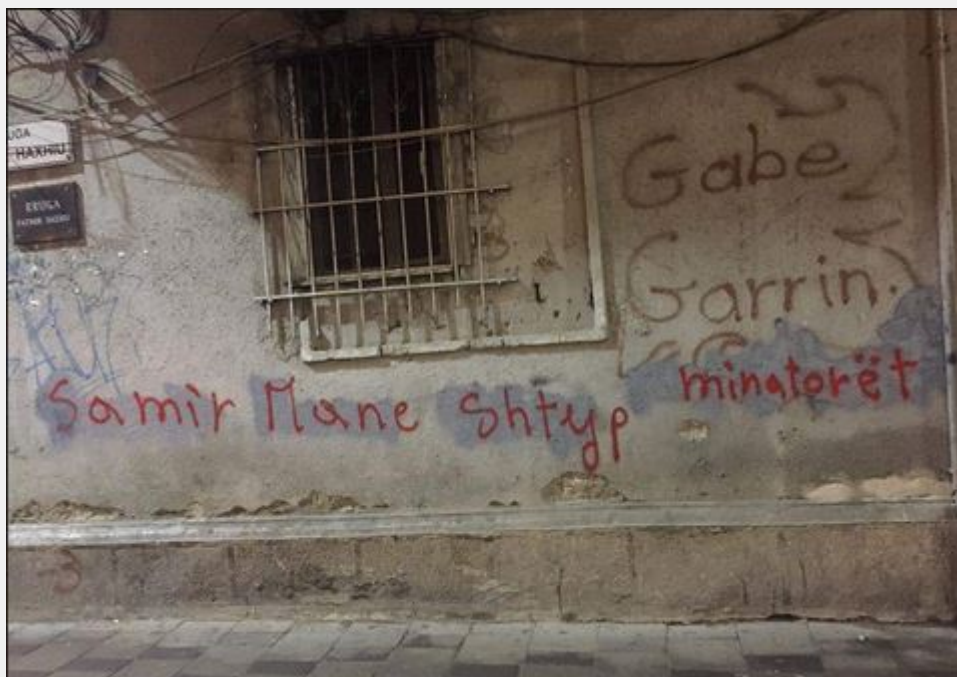 HAXHIU
RRUGA
Gabe
Garrin.
Samir Mane Shtyp minatorët